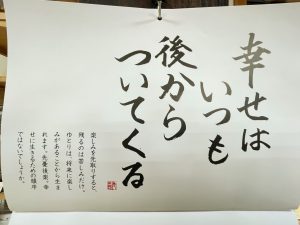 幸せは
いつも
後から
ついてくる
楽しみを先取りすると、
残るのは苦しみだけ。
ゆとりは、将来に楽し
みがあることから生ま
れます。先憂後楽、幸
せに生きるための順序
ではないでしょうか。